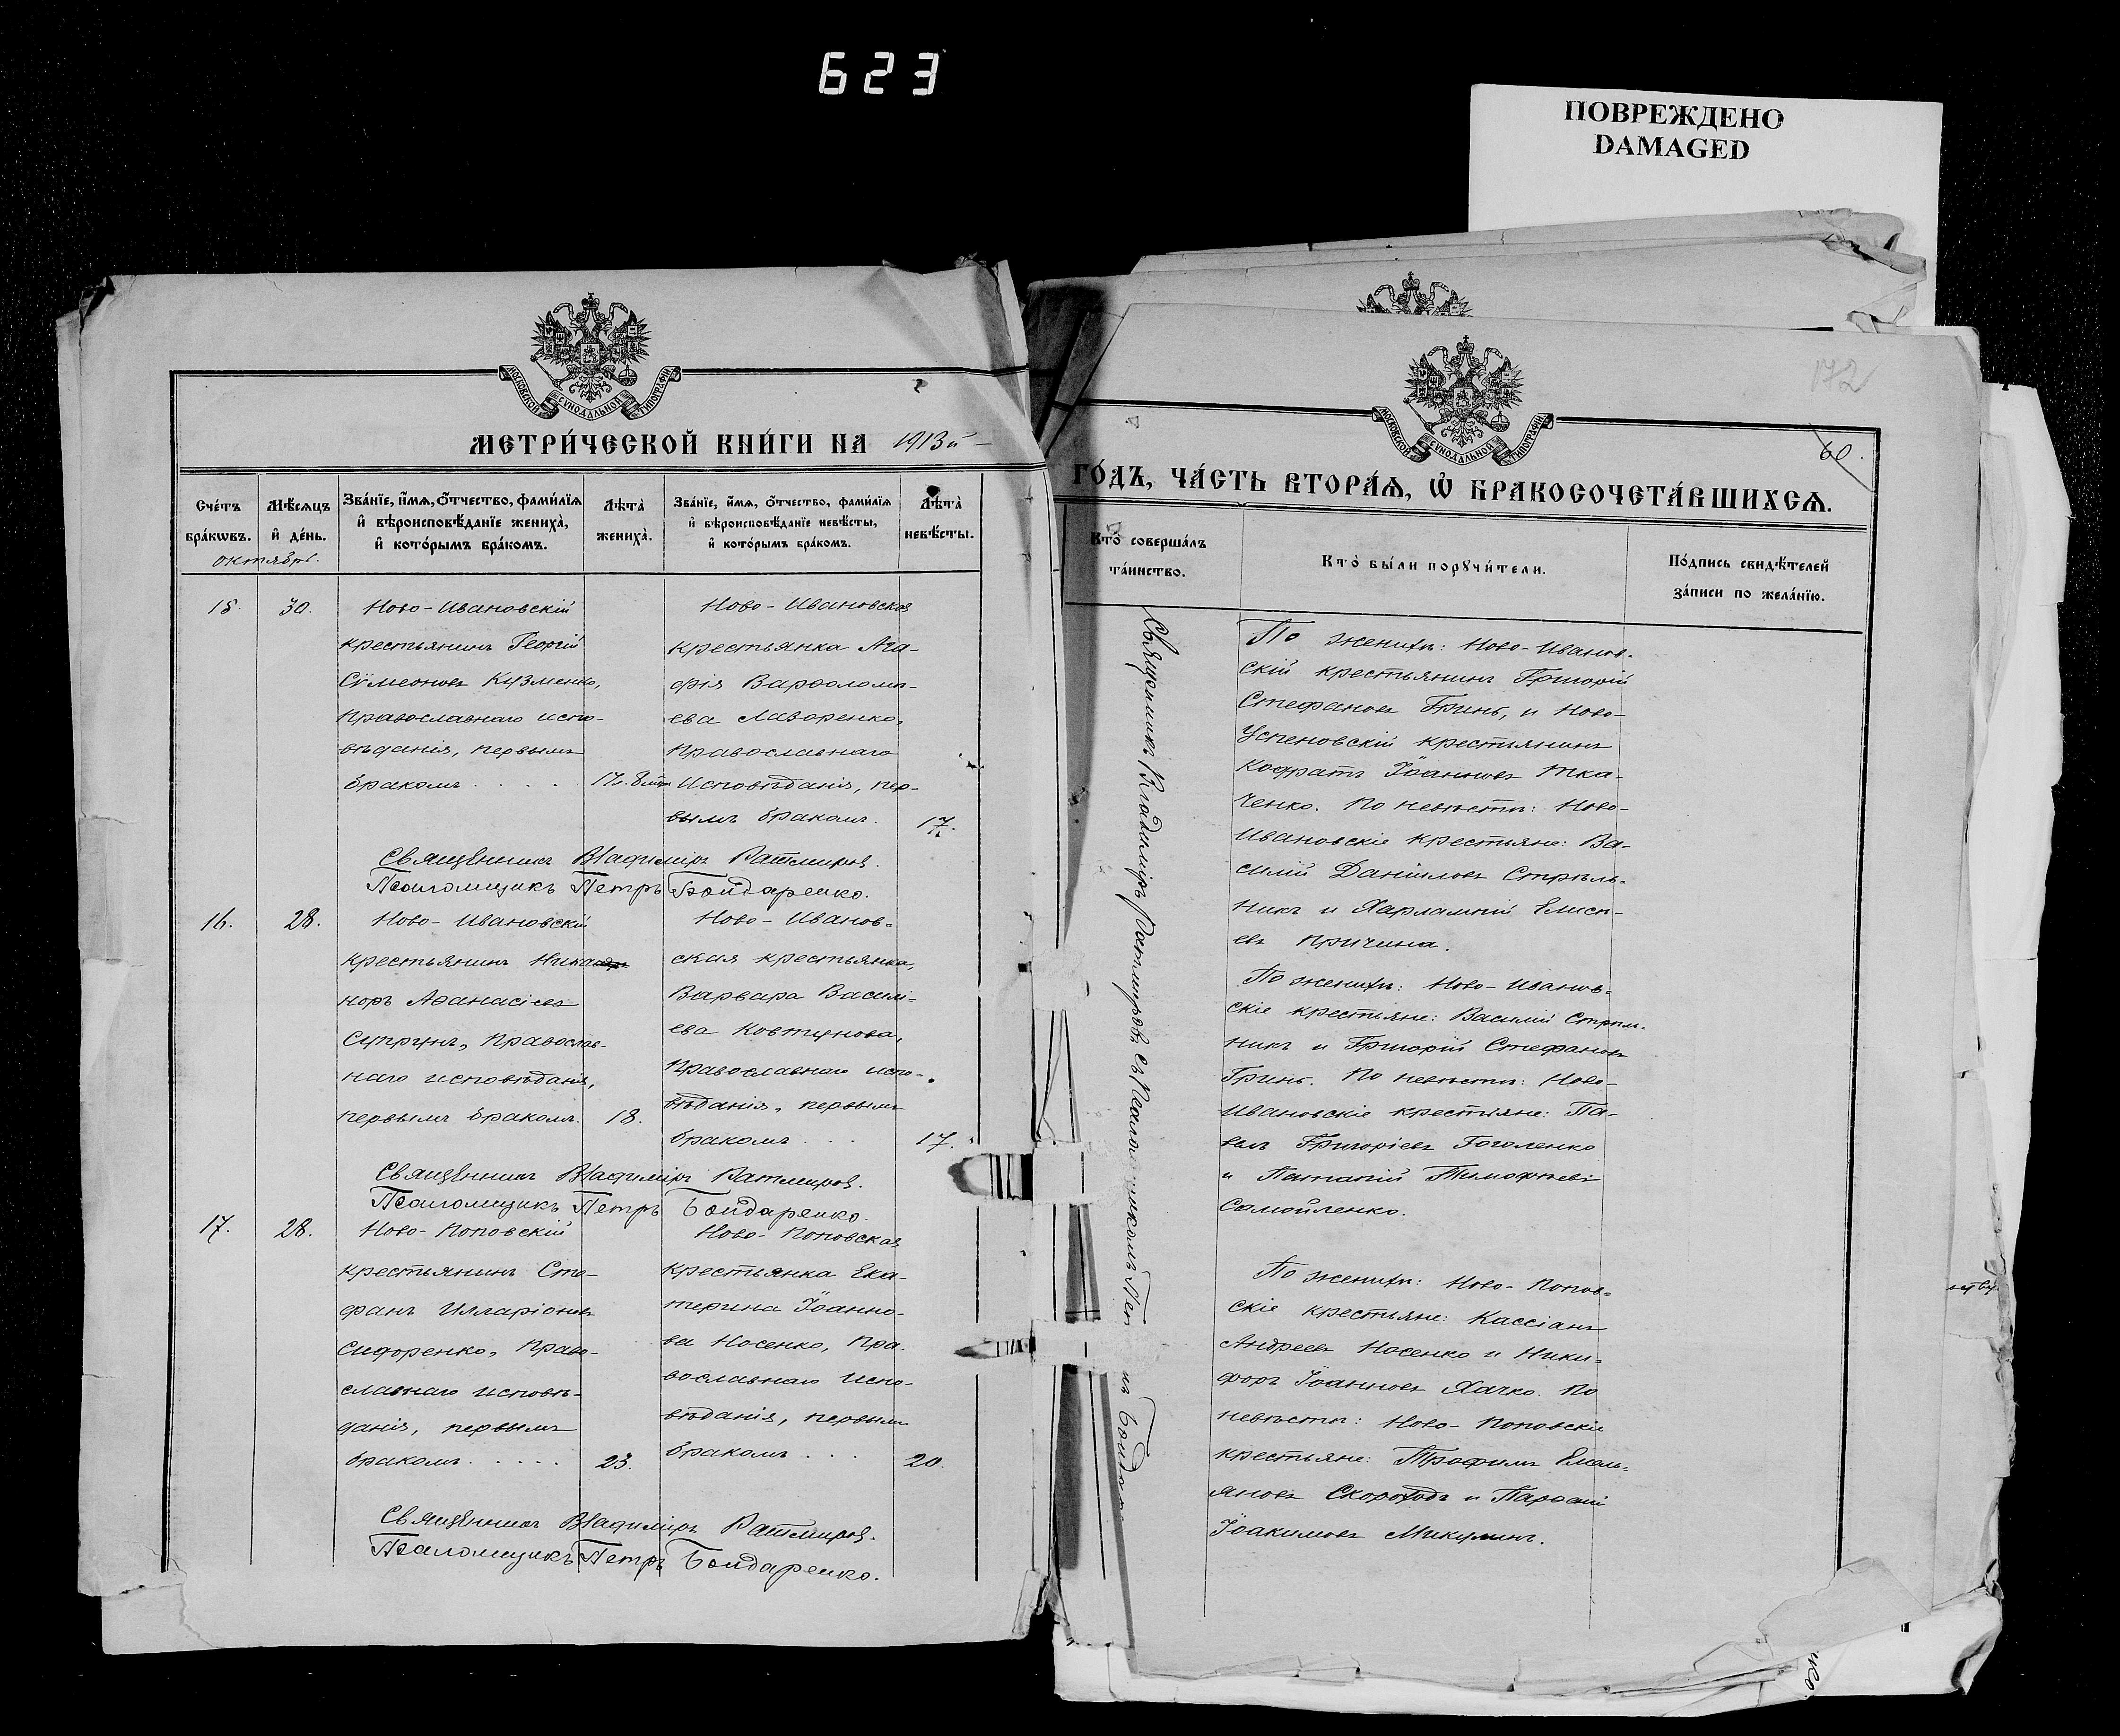 623
ПОВРЕЖДЕНО
DAMAGED
МОСКОВСКОЙ СѴНОДАЛЬНОЙ ТИПОГРАФІИ
МЕТРИ́ЧЕСКОЙ КНИ́ГИ НА 1913й
Сче́тъ бра́кѡвъ.
Мѣ́сяцъ и҆ де́нь.
Зва́нїе, и҆́мѧ, ѻ҆́тчество, фами́лїѧ
и҆ вѣроисповѣ́данїе жениха̀,
и҆ кото́рымъ бра́комъ.
Лѣ́та̀ жениха̀.
Зва́нїе, и҆́мѧ, ѻ҆́тчество, фами́лїѧ
и҆ вѣроисповѣ́данїе невѣ́сты,
и҆ кото́рымъ бра́комъ.
Лѣ́та̀ невѣ́сты.
октябрь.
15. 30.
Ново-Ивановскій
крестьянинъ Георгій
Сѵмеоновъ Кузменко,
Православнаго испо-
вѣданія, первымъ
бракомъ
Ново-Ивановская
крестьянка Ага-
фія Варѳоломе-
ева Лазоренко,
Православнаго
Исповѣданія, пер-
вымъ бракомъ. 17.
Священникъ Владиміръ Ратмировъ.
Псаломщикъ Петръ Бондаренко.
16. 28.
Ново-Ивановскій
крестьянинъ Ника
норъ Аѳанасіевъ
Супрунъ, Православ-
наго исповѣданія,
первымъ бракомъ. 18.
Ново-Иванов-
ская крестьянка,
Варвара Василі-
ева Ковтунова,
Православнаго испо-
вѣданія, первымъ
бракомъ 17.
Священникъ Владиміръ Ратмировъ.
Псаломщикъ Петръ Бондаренко.
17. 28.
Ново-Поповскій
крестьянинъ Сте-
фанъ Илларіоновъ
Сидоренко, Право-
славнаго исповѣ-
данія, первымъ
бракомъ 23.
Ново-Поповская
крестьянка Ека-
терина Іоанно-
ва Носенко, Пра-
вославнаго испо-
вѣданія, первымъ
бракомъ 20.
Священникъ Владиміръ Ратмировъ.
Псаломщикъ Петръ Бондаренко.
172
60.
МОСКОВСКОЙ СѴНОДАЛЬНОЙ ТИПОГРАФІИ
ГО́ДЪ, ЧА́СТЬ ВТОРА́Ѧ, Ѡ҆ БРАКОСОЧЕТА́ВШИХСѦ.
Кто̀ соверша́лъ
та́инство.
Кто̀ бы́ли порꙋчи́тели.
По́дпись свидѣ́телей
за́писи по жела́нїю.
Священникъ Владиміръ Ратмировъ съ
По женихѣ: Ново-Иванов-
скій крестьянинъ Григорій
Стефановъ Гринь, и Ново-
Успеновскій крестьянинъ
Кодратъ Іоанновъ Тка-
ченко. По невѣстѣ: Ново-
Ивановскіе крестьяне: Ва-
силій Даніиловъ Стрѣль-
никъ и Харлампій Елисѣ-
евъ Причина.
По женихѣ: Ново-Иванов-
скіе крестьяне: Василій Стрѣль-
никъ и Григорій Стефановъ
Гринь. По невѣстѣ: Ново-
Ивановскіе крестьяне: Па-
велъ Григоріевъ Гоголенко
и Тимофѣевъ
Самойленко.
По женихѣ: Ново-Попов-
скіе крестьяне: Кассіанъ
Андреевъ Носенко и Ники-
форъ Іоанновъ Хачко. По
невѣстѣ: Ново-Поповскіе
крестьяне: Трофимъ Емель-
яновъ Скороходъ и
Іоакимовъ Микулинъ.